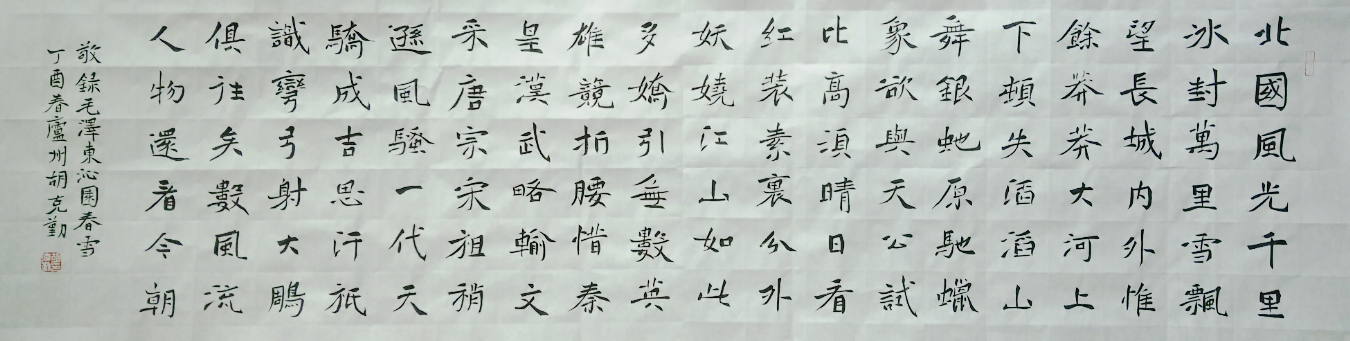 北國風光千里
冰封萬里雪飄
望長城内外惟
餘莽莽大河上
下頓失滔滔山
舞銀虵原馳蠟
象欲與天公試
比高須晴日看
紅裝素裹分外
妖嬈江山如此
多嬌引無數英
雄競折腰惜秦
皇漢武略輸文
采唐宗宋祖稍
遜風騷一代天
驕成吉思汗祇
識彎弓射大鵰
俱往矣數風流
人物還看今朝
敬録毛澤東沁園春雪
丁酉春廬州胡克勤